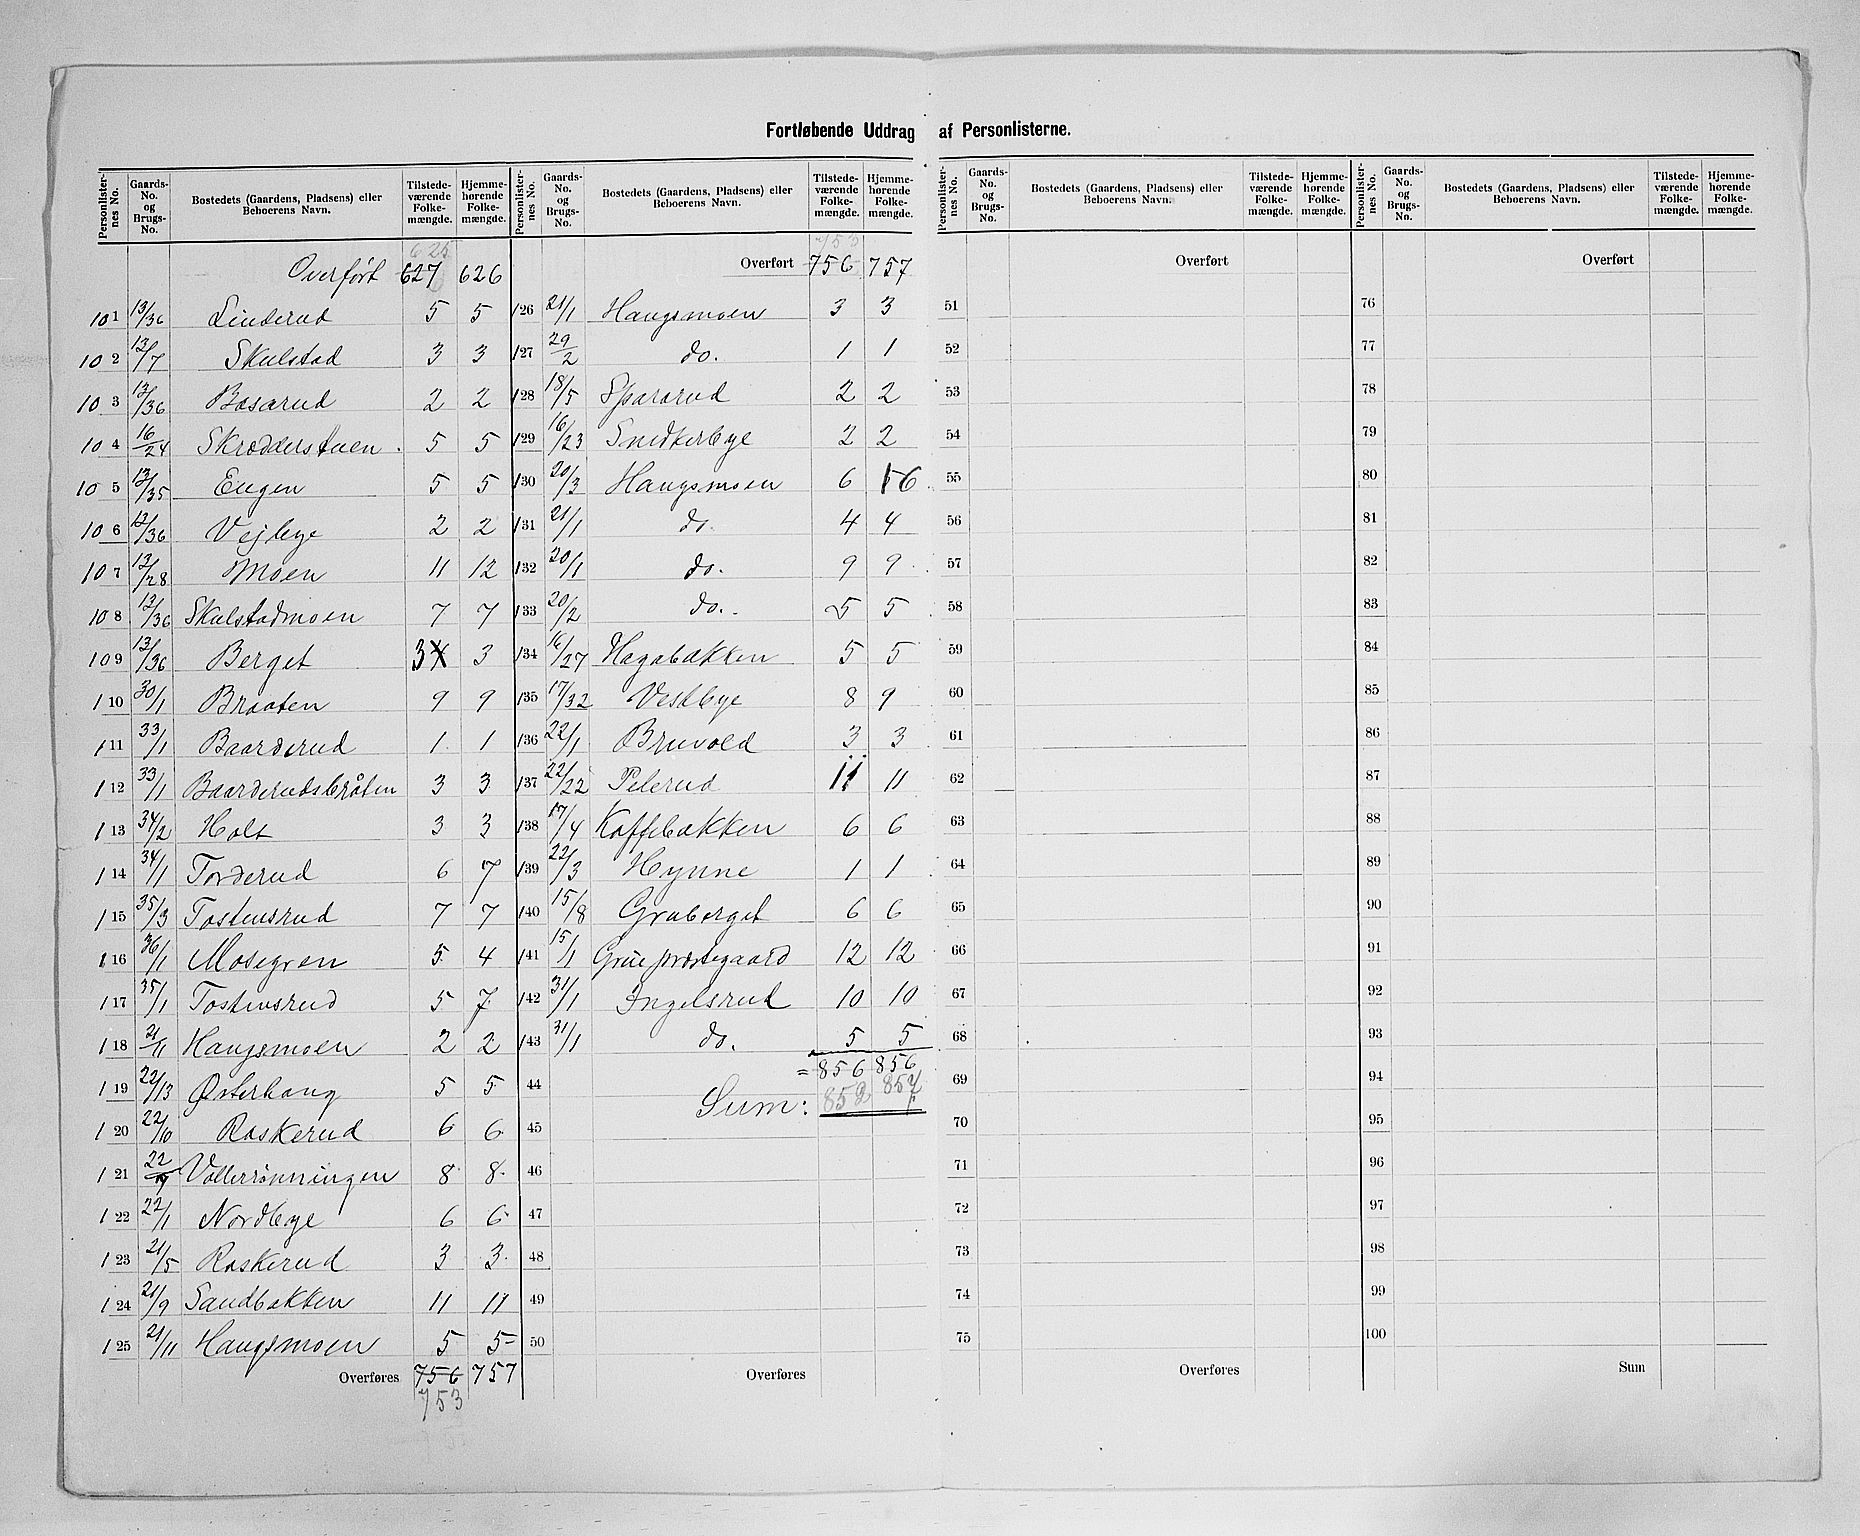 Fortløbende Uddrag af Personlisterne.
Personlisternes No. | Gaards-No. og Brugs-No. | Bostedets (Gaardens, Pladsens) eller Beboerens Navn. | Tilstedeværende Folkemængde. | Hjemmehørende Folkemængde.
625
Overført 627 626
101 13/36 Linderud 5 5
102 13/7 Skulstad 3 3
103 13/36 Bosarud 2 2
104 16/24 Skrædderstuen 5 5
105 13/35 Engen 5 5
106 13/36 Vejbye 2 2
107 13/28 Moen 11 12
108 13/36 Skulstadmoen 7 7
109 13/36 Berget 3 3
110 30/1 Braaten 9 9
111 33/1 Baarderud 1 1
112 33/1 Baarderudsbråten 3 3
113 34/2 Holt 3 3
114 34/1 Torderud 6 7
115 35/3 Tostensrud 7 7
116 36/1 Mosegren 5 4
117 35/1 Tostensrud 5 7
118 21/11 Haugsmoen 2 2
119 22/13 Østerhaug 5 5
120 22/10 Raskerud 6 6
121 22/19 Vollerrønningen 8 8
122 22/1 Nordbye 6 6
123 21/5 Raskerud 3 3
124 21/9 Sandbakken 11 11
125 21/11 Haugsmoen 5 5
Overføres 756 757
753
Personlisternes No. | Gaards-No. og Brugs-No. | Bostedets (Gaardens, Pladsens) eller Beboerens Navn. | Tilstedeværende Folkemængde. | Hjemmehørende Folkemængde.
753
Overført 756 757
126 21/1 Haugsmoen 3 3
127 29/2 do. 1 1
128 18/5 Spararud 2 2
129 16/23 Snedkerbye 2 2
130 20/3 Haugsmoen 6 6
131 21/1 do. 4 4
132 20/1 do. 9 9
133 20/2 do. 5 5
134 16/27 Hagabakken 5 5
135 17/32 Vestbye 8 9
136 22/1 Bruvold 3 3
137 22/22 Pelerud 11 11
138 17/4 Kaffebakken 6 6
139 22/3 Hynne 1 1
140 15/8 Graberget 6 6
141 15/1 Grue præstegaard 12 12
142 31/1 Ingelsrud 10 10
143 31/1 do. 5 5
= 856 856
44
Sum: 852 857
45
46
47
48
49
50
Overføres
Personlisternes No. | Gaards-No. og Brugs-No. | Bostedets (Gaardens, Pladsens) eller Beboerens Navn. | Tilstedeværende Folkemængde. | Hjemmehørende Folkemængde.
Overført
51
52
53
54
55
56
57
58
59
60
61
62
63
64
65
66
67
68
69
70
71
72
73
74
75
Overføres
Personlisternes No. | Gaards-No. og Brugs-No. | Bostedets (Gaardens, Pladsens) eller Beboerens Navn. | Tilstedeværende Folkemængde. | Hjemmehørende Folkemængde.
Overført
76
77
78
79
80
81
82
83
84
85
86
87
88
89
90
91
92
93
94
95
96
97
98
99
100
Sum